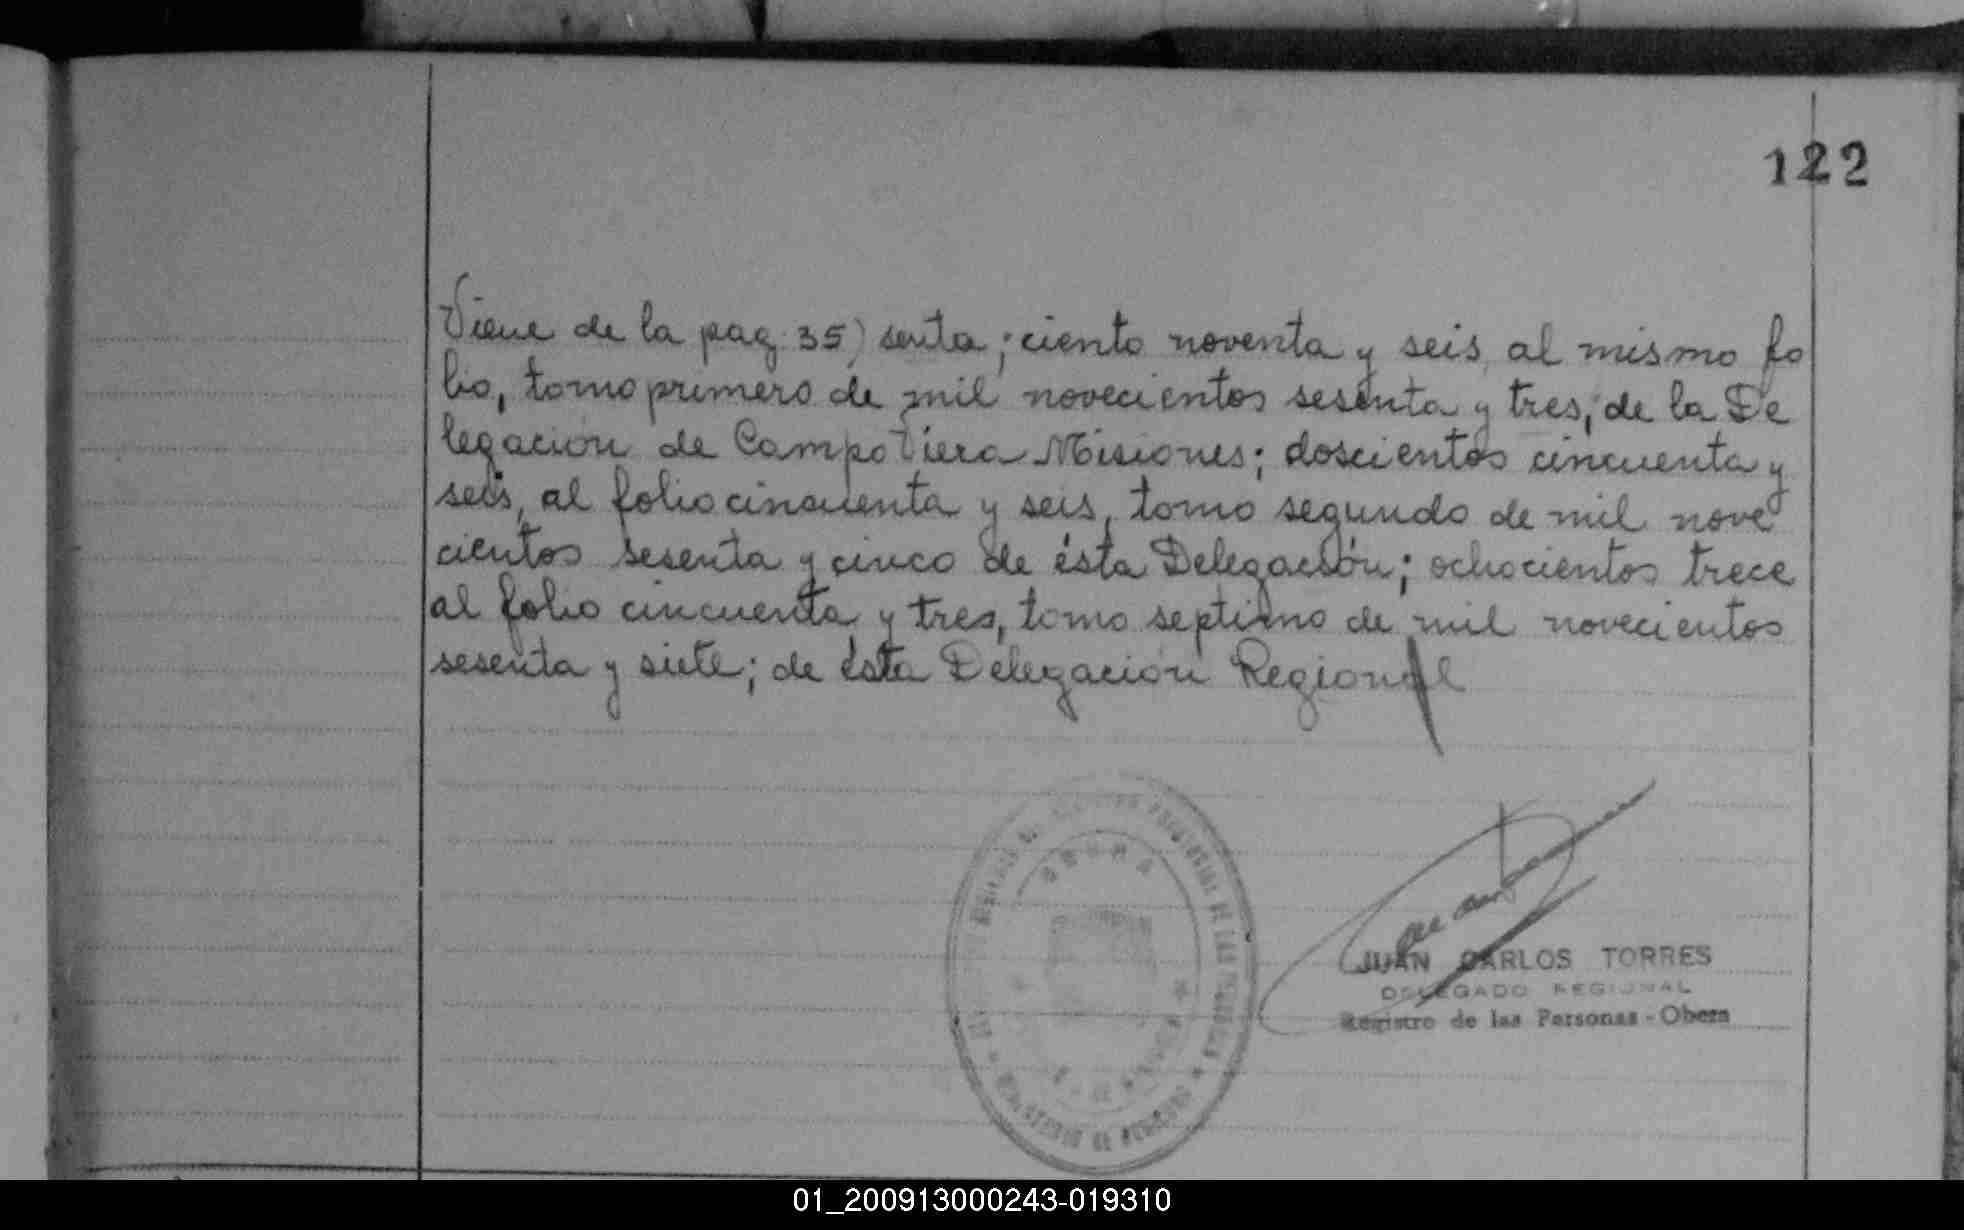 122
Viene de la pag. 35) senta; ciento noventa y seis, al mismo fo
lio, tomo primero de mil novecientos sesenta y tres, de la De
legación de Campo Viera Misiones; doscientos cincuenta y
seis, al folio cincuenta y seis, tomo segundo de mil nove
cientos sesenta y cinco de ésta Delegación; ochocientos trece
al folio cincuenta y tres, tomo septimo de mil novecientos
sesenta y siete; de ésta Delegación Regional
PROVINCIAL DE LAS PERSONAS
MINISTERIO DE GOBIERNO
OBERA
JUAN CARLOS TORRES
DELEGADO REGIONAL
Registro de las Personas - Obera
01_200913000243-019310